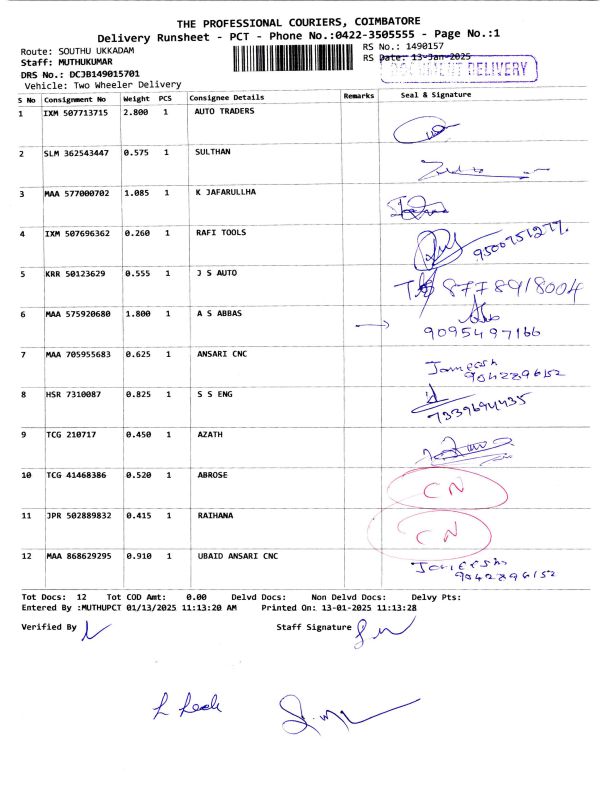 THE PROFESSIONAL COURIERS, COIMBATORE
Delivery Runsheet - PCT - Phone No.:0422-3505555 - Page No.:1
Route: SOUTHU UKKADAM
RS No.: 1490157
Staff: MUTHUKUMAR
RS Date: 13-Jan-2025
DOCUMENT DELIVERY
DRS No.: DCJB149015701
Vehicle: Two Wheeler Delivery
S No Consignment No Weight PCS Consignee Details Remarks Seal & Signature
1 IXM 507713715 2.800 1 AUTO TRADERS
2 SLM 362543447 0.575 1 SULTHAN
3 MAA 577000702 1.085 1 K JAFARULLHA
4 IXM 507696362 0.260 1 RAFI TOOLS 9500751277.
5 KRR 50123629 0.555 1 J S AUTO 8778918004
6 MAA 575920680 1.800 1 A S ABBAS
9095497166
7 MAA 705955683 0.625 1 ANSARI CNC
9042896152
8 HSR 7310087 0.825 1 S S ENG
7339694435
9 TCG 210717 0.450 1 AZATH
10 TCG 41468386 0.520 1 ABROSE CN
11 JPR 502889832 0.415 1 RAIHANA CN
12 MAA 868629295 0.910 1 UBAID ANSARI CNC
9042896152
Tot Docs: 12 Tot COD Amt: 0.00 Delvd Docs: Non Delvd Docs: Delvy Pts:
Entered By :MUTHUPCT 01/13/2025 11:13:20 AM Printed On: 13-01-2025 11:13:28
Verified By Staff Signature